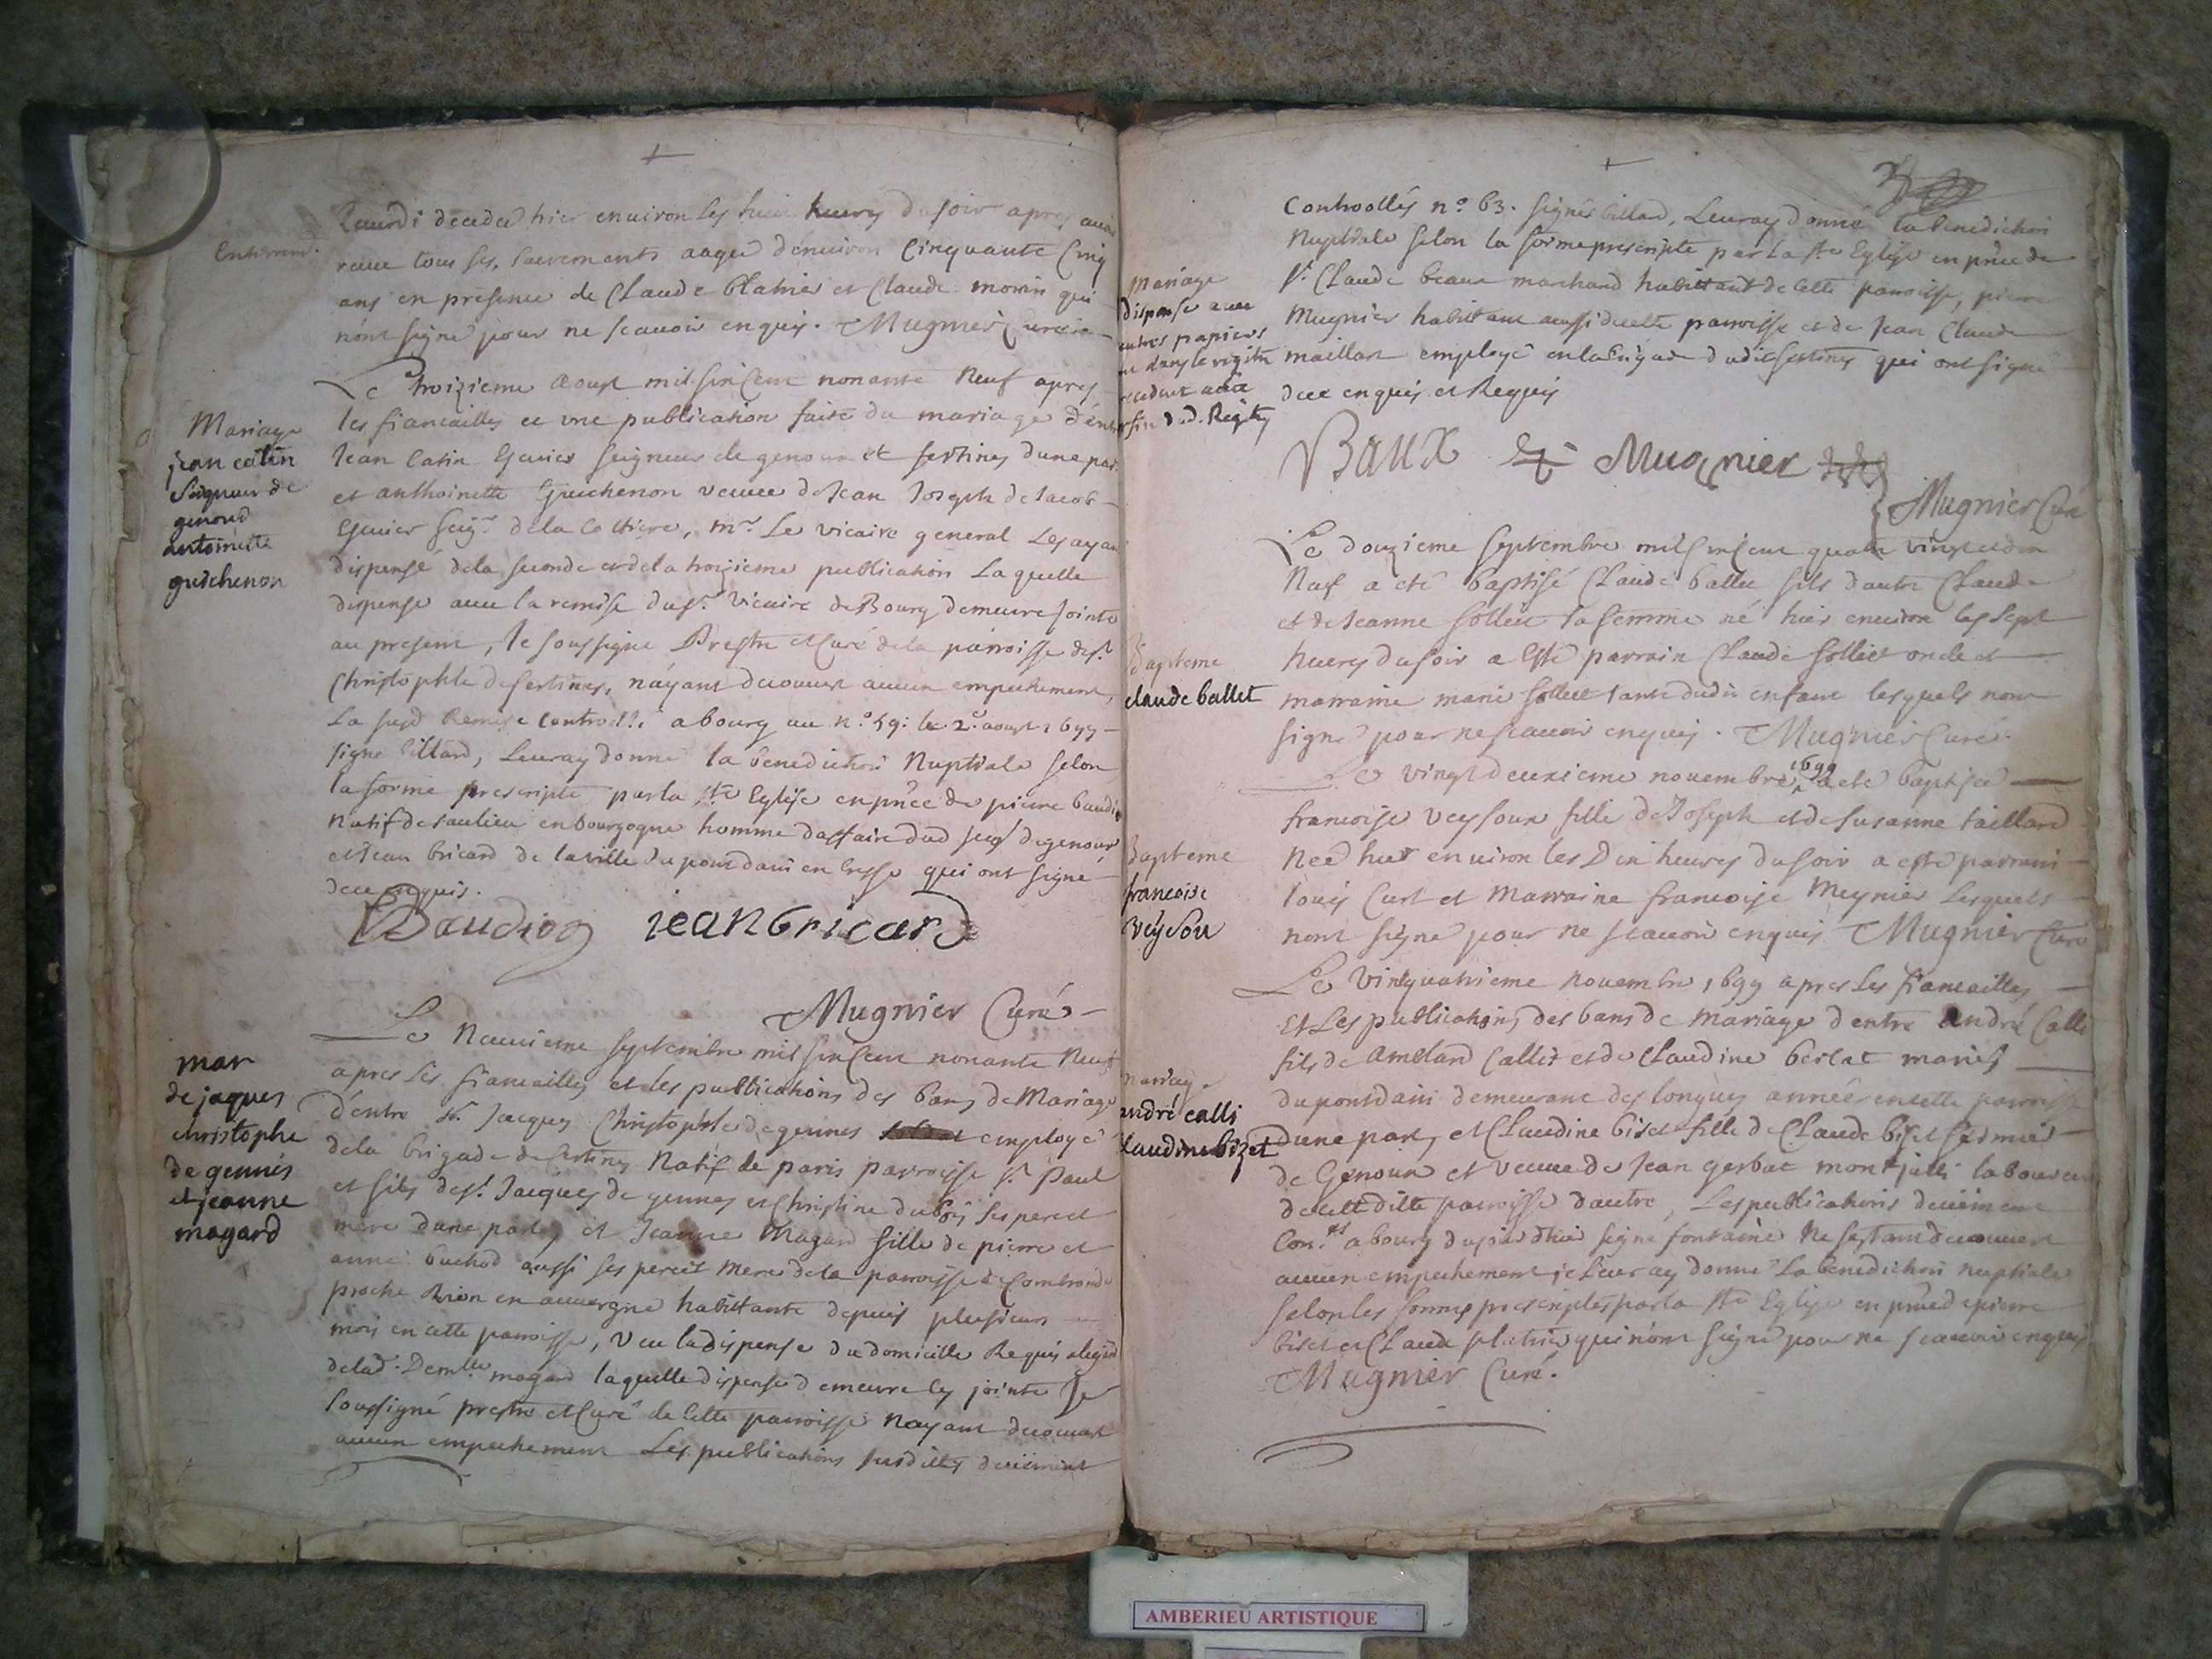 decedé hier environ les huit heures du soir apres avoir
Enterrem.
receu tous ses sacrements aagée d'environ Cinquante Cinq
ans en presence de Claude et Claude morin qui
n'ont signé pour ne scavoir enquis. Mugnier Curé
Le troizieme Aoust mil six Cent nonante Neuf apres
les fiancailles et une publication faite du mariage d'entre
Mariage
jean catin
Seigneur de
genoud
antoinette
guichenon
Jean Catin Escuier seigneur de genoux et sertines d'une part
et anthoinette Guichenon veuve de Jean Joseph de Jacob
Escuier seigr de la Cottiere, mr Le vicaire general Les ayant
dispensé de la seconde et de la troizieme publication Laquelle
dispense avec la remise du sr Vicaire de Bourg demeure jointe
au present, Je soussigné Prestre et Curé de la parroisse de st
Christophle de sertines, n'ayant decouvert aucun empechement,
La susd Remise Controllée a bourg au n.o 59: le 2.e aoust 1699
signé billard, Leur ay donné la benediction Nuptiale selon
la forme prescripte par la ste Eglise en pnce de pierre baudion
Natif de saulieu en bourgogne homme d'affaire dud seigr de genoux
et Jean bricard de la ville du pont dain en bresse qui ont signé
de ce enquis.
Baudion jean bricard
Mugnier Curé
Le Neuvieme septembre mil six Cent nonante Neuf
apres les fiancailles et les publications des bans de Mariage
mar
de jaques
christophe
de gennes
et jeanne
magard
d'entre sr. Jacques Christophle de gennes employé
de la brigade de Certines Natif de paris parroisse st Paul
et fils de sr. Jacques de gennes et Christine dubois ses pere et
mere d'une part, et Jeanne Magard fille de pierre et
anne aussi ses pere et mere de la parroisse de Combronde
proche Rion en auvergne habittante depuis plusieurs
mois en cette parroisse, veu la dispense du domicille Requis
delad. Demlle magard laquelle dispense demeure jointe Je
soussigné prestre et Curé de Cette parroisse Nayant decouvert
aucun empechement Les publications susdites deüement
Controllés n.o 63. signés billard, Leur ay donné la benediction
Nuptiale selon la forme prescripte par la ste Eglise en pnce de
sr. Claude beaux marchand habittant de Cette parroisse, pierre
Mugnier habittant aussi de cette parroisse et de Jean Claude
maillart employé en la brigade dudit sertines qui ont signé
de ce enquis et Requis
mariage
dispense avec
autres papiers
dans le registre
fin d.d. Registre
BAUX Mugnier
Mugnier Curé
Le douzieme septembre mil six cent quatre vingt et dix
Neuf a eté baptisé Claude ballet fils d'autre Claude
et de Jeanne sollet sa femme né hier environ les sept
heures du soir a esté parrain Claude sollet oncle et
Bapteme
claude ballet
marraine marie sollet tante dudit enfant lesquels n'ont
signé pour ne scavoir enquis. Mugnier Curé.
Le vingt deuxieme novembre 1699 a eté baptisée
francoise veysoux fille de Joseph et de Susanne taillard
Bapteme
francoise
veysou
Née hier environ les Dix heures du soir a esté parrain
louis Curt et Marraine francoise Meynier Lesquels
n'ont signé pour ne scavoir enquis Mugnier Curé
Le Vingtquatrieme novembre 1699 apres les fiancailles
Et Les publications des bans de Mariage d'entre André Callit
fils de Amblard Callit et de Claudine berlat mariés
mariage
andré calli
claudine bizet
du pontdain demeurant des longues années en cette parroisse
d'une part, et Claudine biset fille de Claude biset
de Genoux et veuve de Jean gerbat laboureur
de cettditte parroisse d'autre, Les publications deüement
Con.es a bourg du jour d'hier signé fontaine Ne s'estant decouvert
aucun empechement je Leur ay donné La benediction nuptiale
selon les formes prescriptes par la ste Eglise en pnce de pierre
biset et Claude qui n'ont signé pour ne scavoir enquis
Mugnier Curé.
AMBERIEU ARTISTIQUE